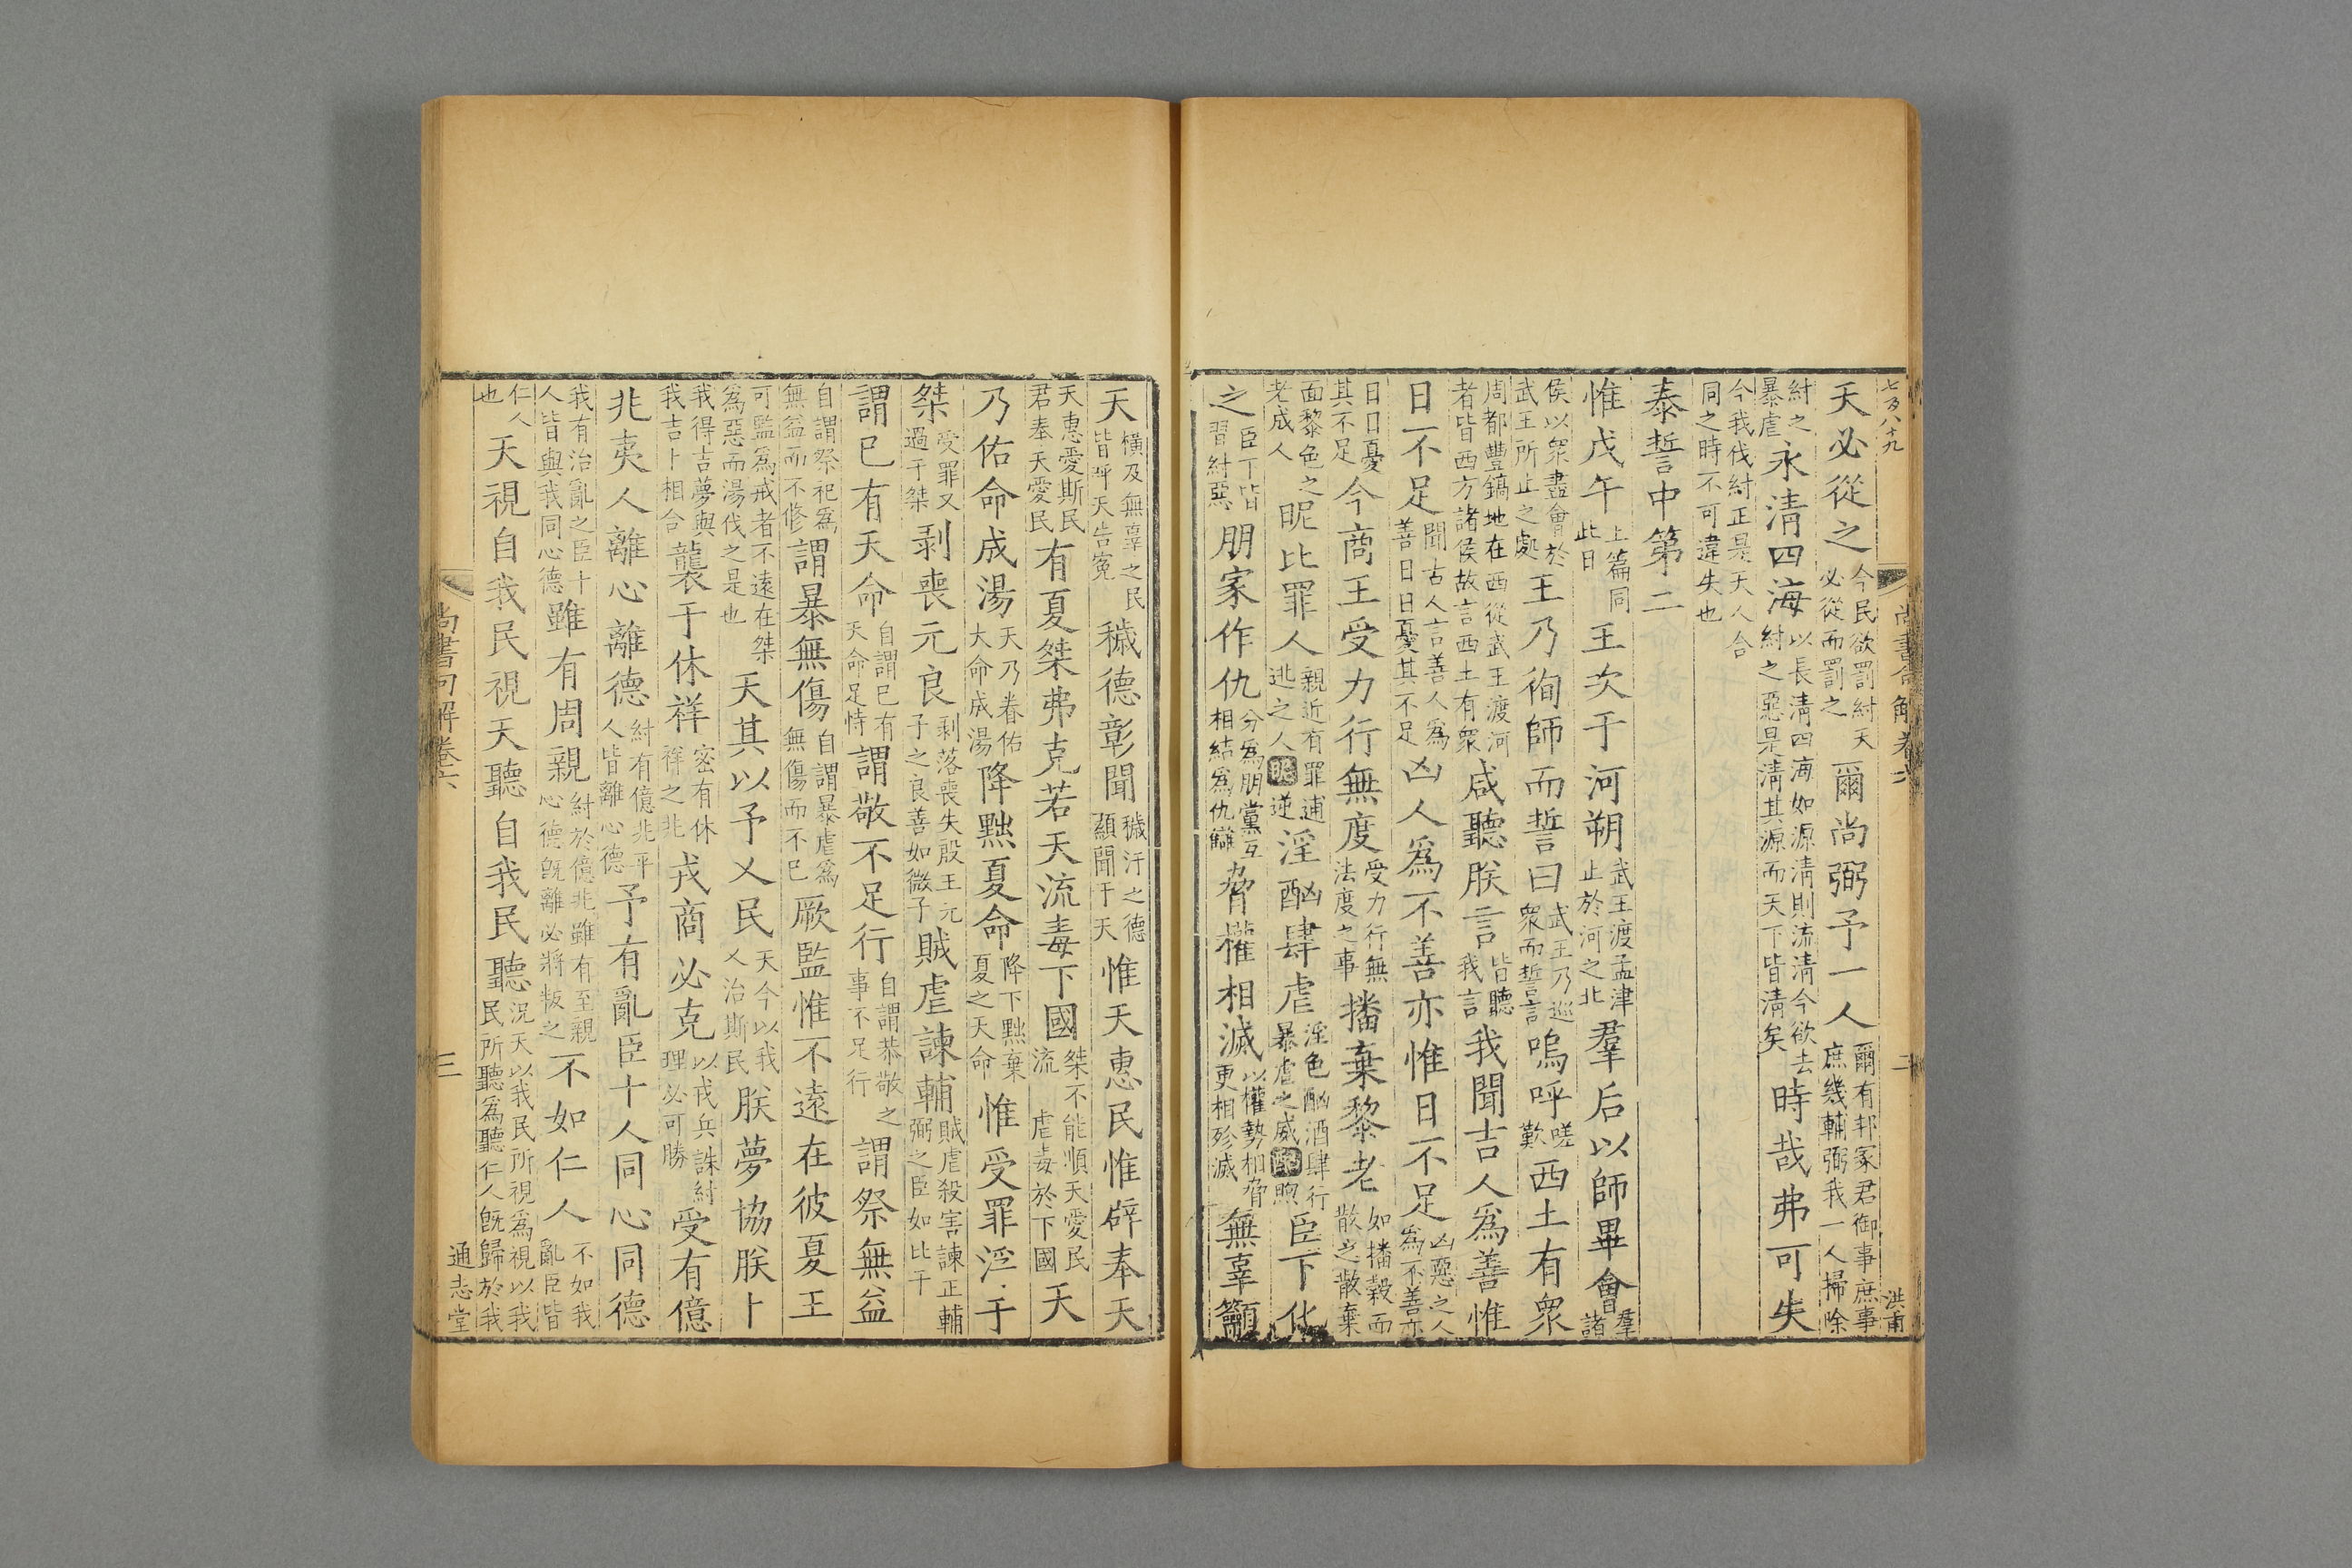 七百八十九
尚書句解卷六 二 洪甫
天必從之今民欲罰紂天必從而罰之爾尚弼予一人爾有邦冢君御事庶事庶幾輔弼我一人掃除
紂之暴虐永清四海以長清四海如源清則流清今欲去紂之惡是清其源而天下皆清矣時哉弗可失
今我伐紂正是天人合同之時不可違失也
泰誓中第二
惟戊午上篇同此日王次于河朔武王渡孟津止於河之北羣后以師畢會羣諸
侯以衆盡會於武王所止之處王乃徇師而誓曰武王乃巡衆而誓言嗚呼嗟歎西土有衆
周都豐鎬地在西從武王渡河者皆西方諸侯故言西土有衆咸聽朕言皆聽我言我聞吉人爲善惟
日不足聞古人言善人爲善日日憂其不足凶人爲不善亦惟日不足凶惡之人爲不善亦
日日憂其不足今商王受力行無度受力行無法度之事播棄黎老如播穀而散之散棄
面黎色之老成人昵比罪人親近有罪逋逃之人昵逆淫酗肆虐淫色酗酒肆行暴虐之威酗煦臣下化
之臣下皆習紂惡朋家作仇分爲朋黨互相結爲仇讎脅權相滅以權勢相脅更相殄滅無辜籲
天橫及無辜之民皆呼天告冤穢德彰聞穢汙之德顯聞于天惟天惠民惟辟奉天
天惠愛斯民君奉天愛民有夏桀弗克若天流毒下國桀不能順天愛民流虐毒於下國天
乃佑命成湯天乃眷佑大命成湯降黜夏命降下黜棄夏之天命惟受罪浮于
桀受罪又過于桀剥喪元良剥落喪失殷王元子之良善如微子賊虐諫輔賊虐殺害諫正輔弼之臣如比干
謂己有天命自謂己有天命足恃謂敬不足行自謂恭敬之事不足行謂祭無益
自謂祭祀爲無益而不修謂暴無傷自謂暴虐爲無傷而不已厥監惟不遠在彼夏王
可監爲戒者不遠在桀爲惡而湯伐之是也天其以予乂民天今以我乂治斯民朕夢協朕卜
我得吉夢與我吉卜相合襲于休祥密有休祥之兆戎商必克以戎兵誅紂理必可勝受有億
兆夷人離心離德紂有億兆平人皆離心德予有亂臣十人同心同德
我有治亂之臣十人皆與我同心德雖有周親紂於億兆雖有至親心德旣離必將叛之不如仁人不如我亂臣皆
仁人也天視自我民視天聽自我民聽況天以我民所視爲視以我民所聽爲聽仁人旣歸於我
尚書句解卷六 三 通志堂